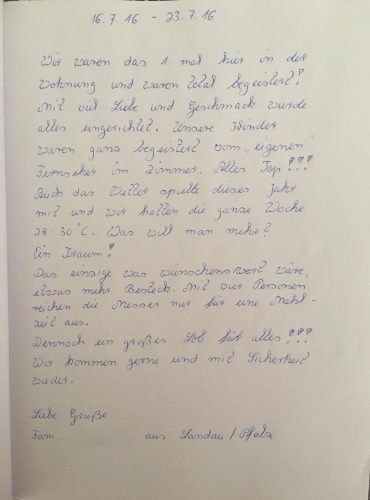 16.7.16 - 23.7.16
Wir waren das 1. mal hier in der
Wohnung und waren total begeistert!
Mit viel Liebe und Geschmack wurde
alles eingerichtet. Unsere Kinder
waren ganz begeistert vom „eigenen"
Fernseher im Zimmer. Alles Top!!!
Auch das Wetter spielte dieses Jahr
mit und wir hatten die ganze Woche
28-30°C. Was will man mehr?
Ein Traum!
Das einzige was wünschenswert wäre,
etwas mehr Besteck. Mit vier Personen
reichen die Messer nur für eine Mahl-
zeit aus.
Dennoch ein großes Lob für alles!!!
Wir kommen gerne und mit Sicherheit
wieder.
Liebe Grüße
Fam aus Landau / Pfalz